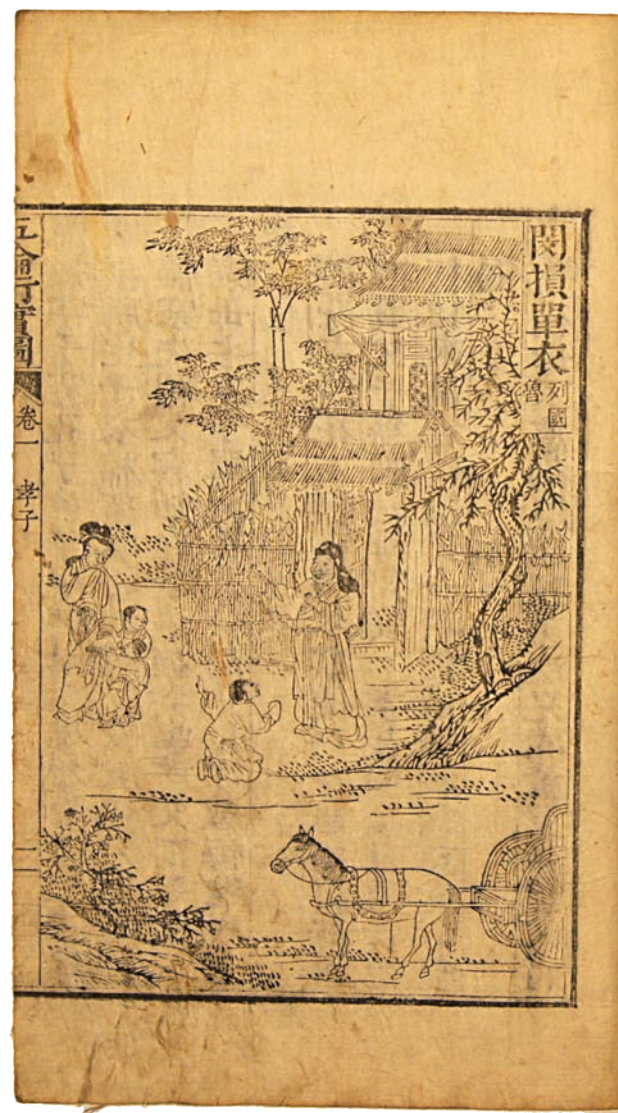 閔損單衣
列國
魯
五倫行實圖
卷一 孝子
二